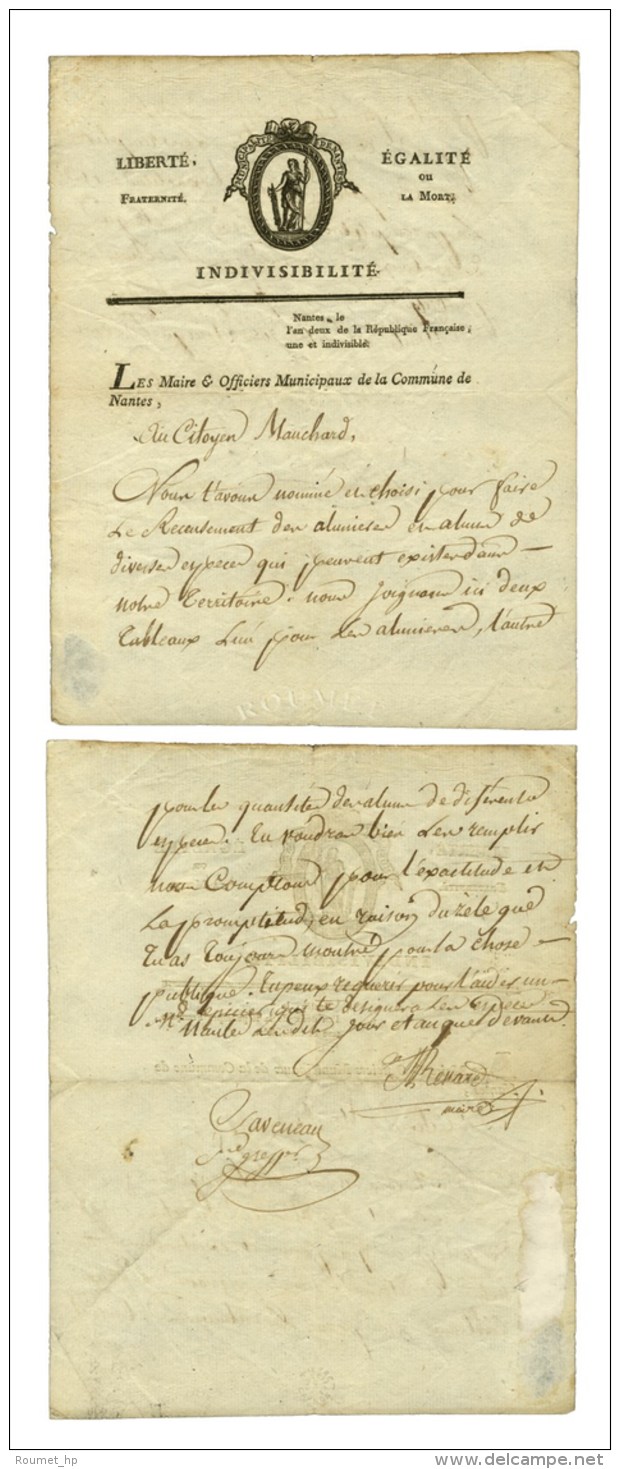 MUNICIPALITÉ DE NANTES
LIBERTÉ, ÉGALITÉ
ou
FRATERNITÉ. LA MORT,
INDIVISIBILITÉ
Nantes, le
l'an deux de la République Française,
une et indivisible.
LES Maire & Officiers Municipaux de la Commune de
Nantes,
Au Citoyen Mauchard,
Nous t'avons nommé et choisi pour faire
Le Recensement des alunieres et aluns de
diverses especes qui peuvent exister dans
notre Territoire. nous joignons ici deux
Tableaux L'un pour les alunieres, l'autre
ROUMET
pour les quantités des aluns de diférentes
especes. Tu voudras bien les remplir
nous Comptons pour l'exactitude et
La promptitude, en raison du zele que
Tu as Toujours montré pour la chose
publique. Tu peux requerir pour t'aider un
Md. epicier qui te designera les especes
Nantes Les dits Jour et an que devant.
JJRenard
maire
Taveneau
Sre greffier
Roumet_hp
www.delcampe.net